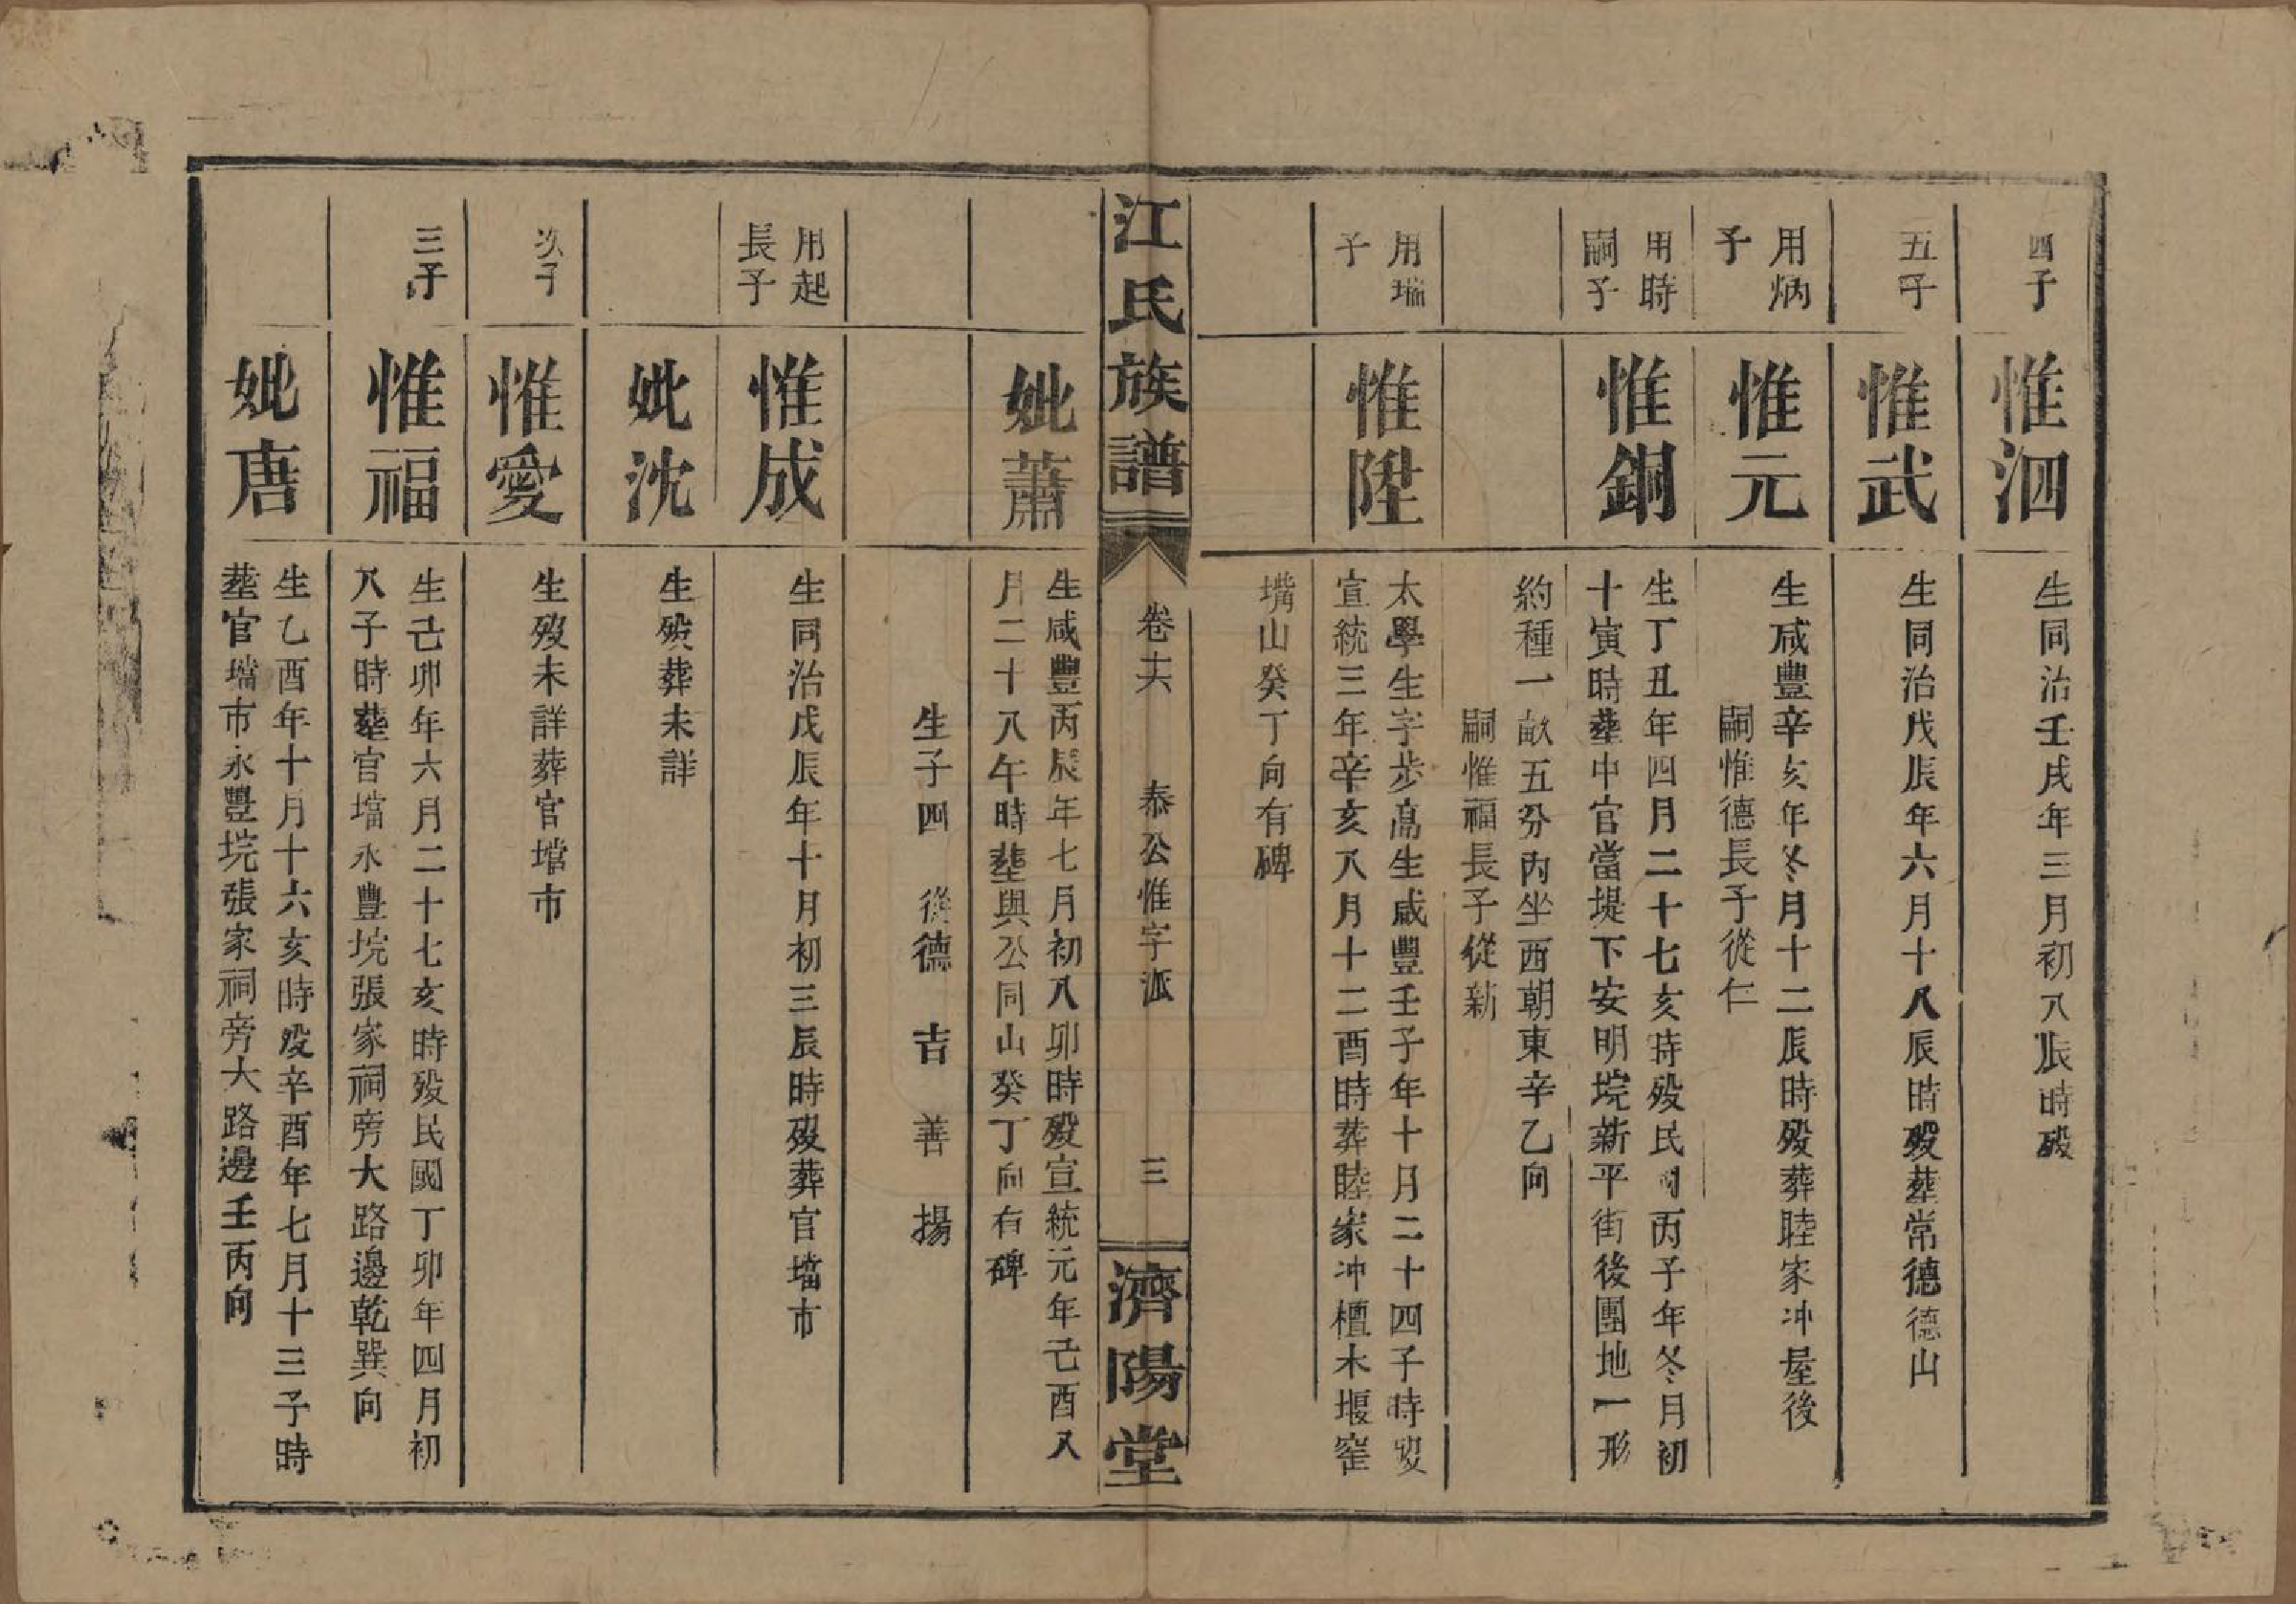 四子
惟泗
生同治壬戌年三月初八辰時殁
五子
惟武
生同治戊辰年六月十八辰時殁塟常德德山
用炳
子
惟元
生咸豐辛亥年冬月十二辰時殁葬睦家冲屋後
嗣惟德長子從仁
用時
嗣子
惟銅
生丁丑年四月二十七亥時殁民國丙子年冬月初
十寅時塟中官當堤下安明垸新平街後團地一形
約種一畝五分內坐西朝東辛乙向
嗣惟福長子從新
用瑞
子
惟陞
太學生字步高生咸豐壬子年十月二十四子時殁
宣統三年辛亥八月十二酉時葬睦家冲檀木堰窑
嘴山癸丁向有碑
江氏族譜
卷十六
泰公惟字派
三
濟陽堂
妣蕭
生咸豐丙辰年七月初八卯時殁宣統元年己酉又
月二十八午時塟與公同山癸丁向有碑
生子四 從德 吉 善 揚
用起
長子
惟成
生同治戊辰年十月初三辰時殁葬官壋市
妣沈
生殁葬未詳
次子
惟愛
生殁未詳葬官壋市
三子
惟福
生己卯年六月二十七亥時殁民國丁卯年四月初
八子時塟官壋永豐垸張家祠旁大路邊乾巽向
妣唐
生乙酉年十月十六亥時殁辛酉年七月十三子時
塟官壋市永豐垸張家祠旁大路邊壬丙向